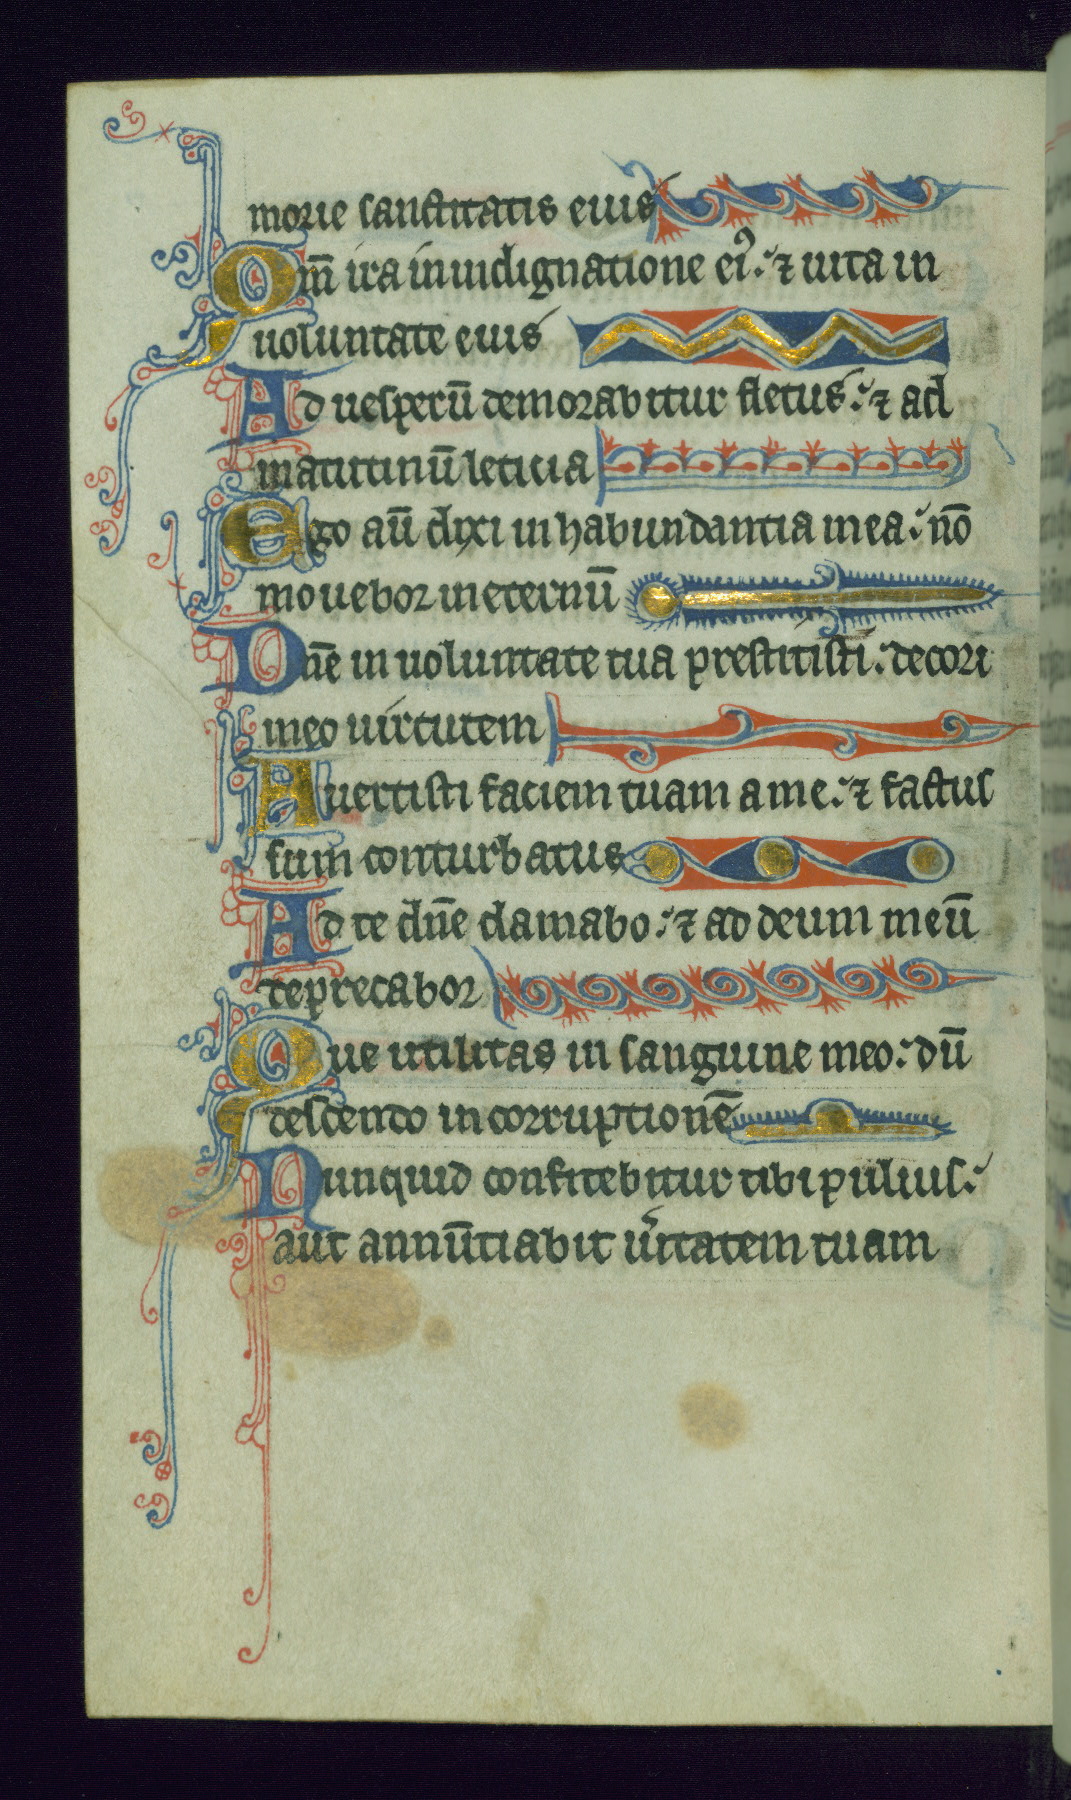 morie sanctitatis eius
Qm̄ ira in indignatione ei᷒. ⁊ uita in
uoluntate eius
Ad uesperū demorabitur fletus. ⁊ ad
matutinū leticia
Ego aū dixi in habundantia mea. nō
mouebor in eternū
Dn̄e in uoluntate tua prestitisti. decori
meo uirtutem
Auertisti faciem tuam a me. ⁊ factus
sum conturbatus
Ad te dn̄e clamabo. ⁊ ad deum meū
deprecabor
Que utilitas in sanguine meo. dū
descendo in corruptionē
Nunquid confitebitur tibi puluis.
aut annūtiabit uʹitatem tuam